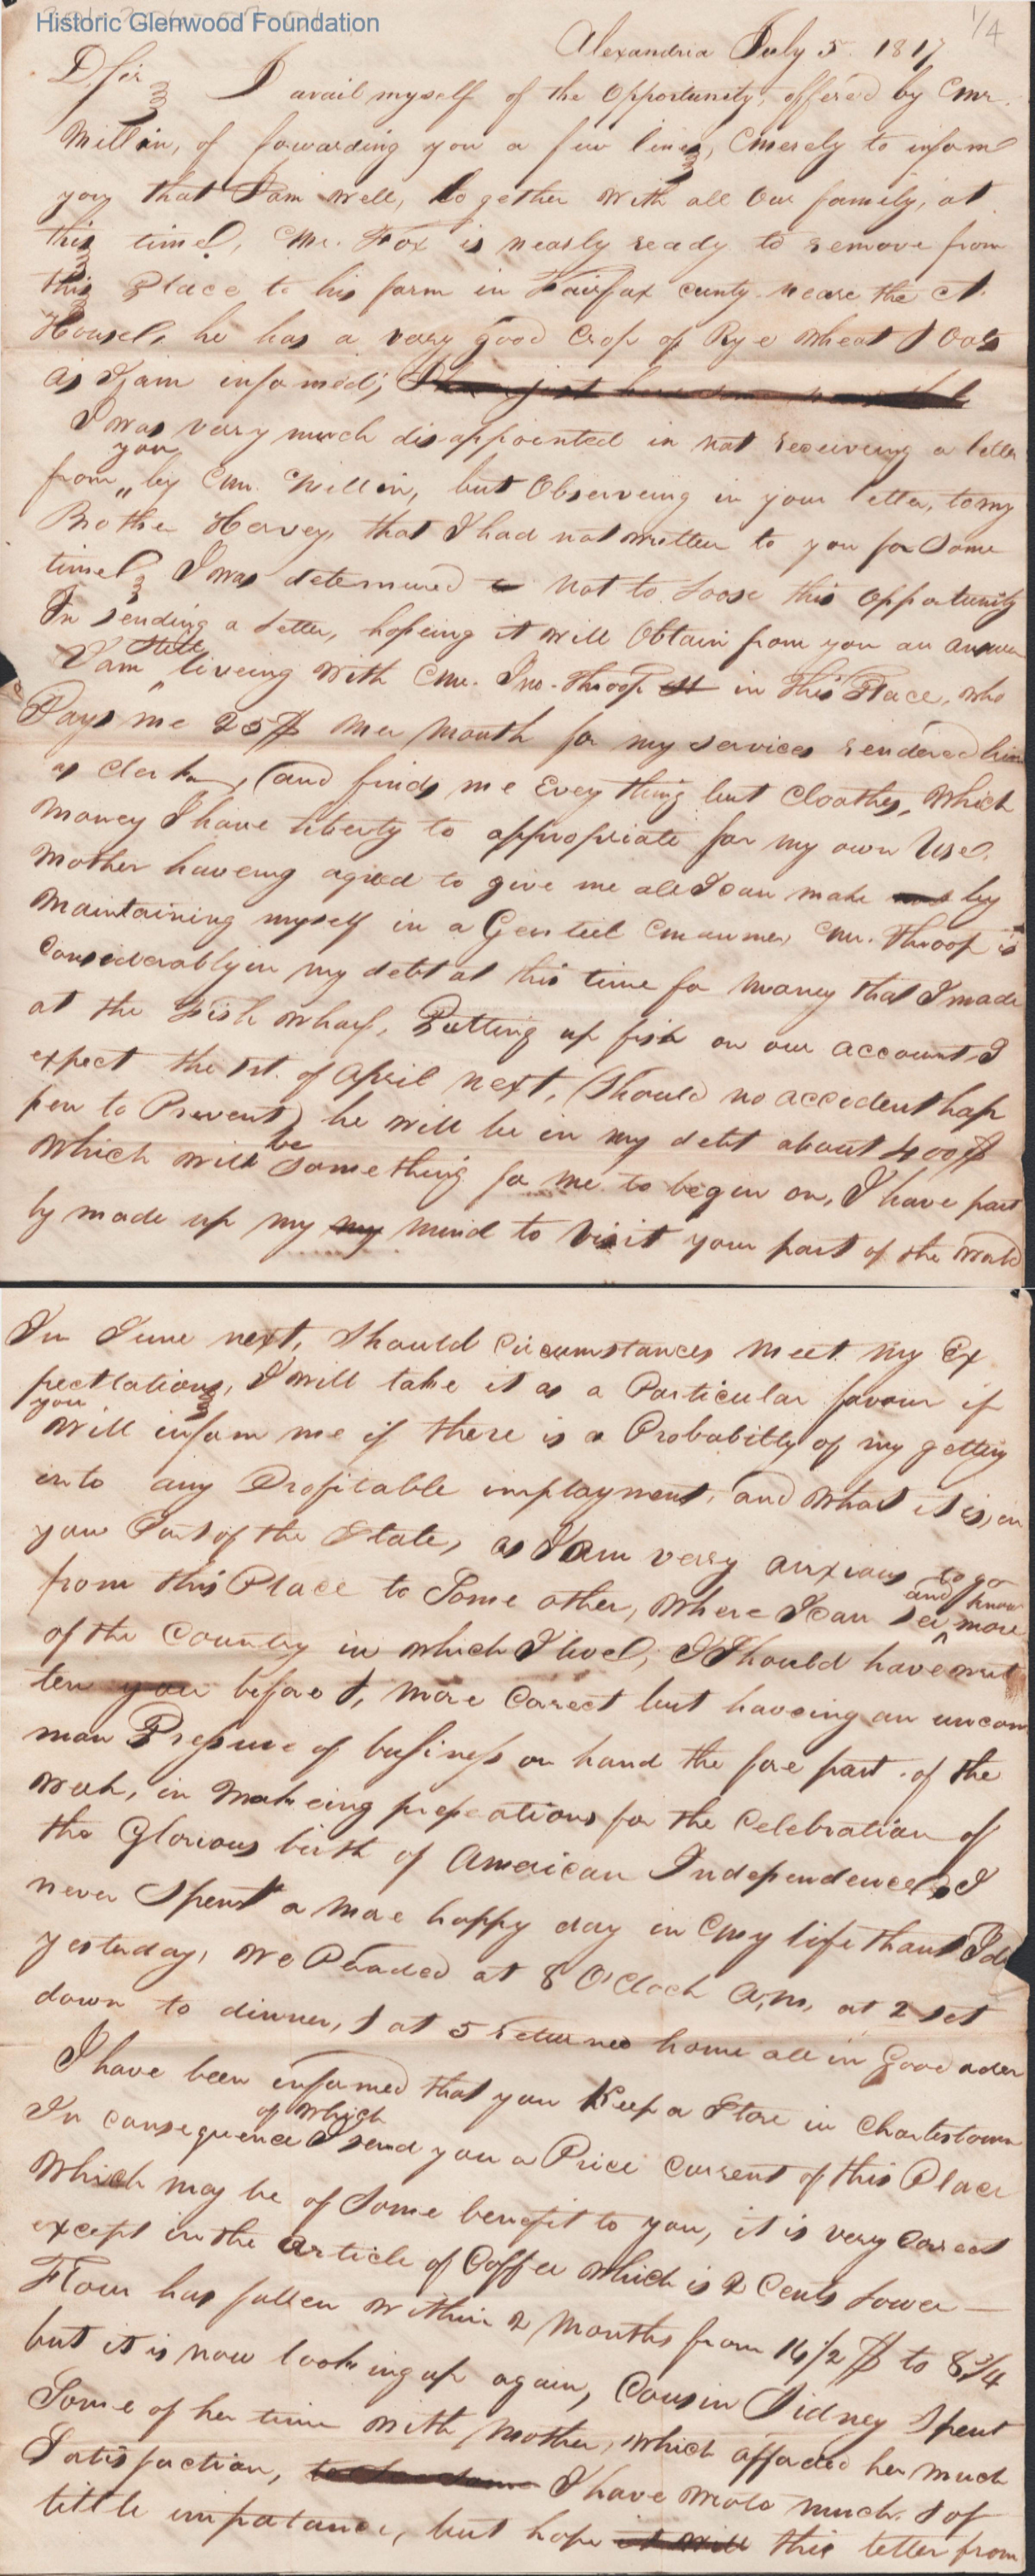 Historic Glenwood Foundation
1/4
Alexandria July 5 1817
D. Sir I avail myself of the Opportunity, offered by Mr.
Millin, of forwarding you a fiew lines, Merely to inform
you that I am well, together with all our family, at
this time, Mr. Fox is nearly ready to remove from
this Place to his farm in Fairfax county neare the Ct.
House, he has a very good Crop of Rye Wheat & Oats
as I am informed;
I was very much disappointed in not receiveing a letter
from you by Mr. Millin, but Observeing in your letter, to my
Brother Hervey, that I had not written to you for Some
time, I was determined to not to Loose this opportunity
In sending a Letter, hopeing it will Obtain from you an answer
I am still liveing with Mr. Jno. Throop in this Place, who
Pays me 25$ Per Month for my services rendered him
as clerk, (and finds me Evey thing but Cloathes, Which
Money I have liberty to appropriate for my own Use.
Mother haveing agred to give me all I can make by
Maintaining myself in a Genteel Manner, Mr. Throop is
Considerably in my debt at this time for Money that I made
at the Fish Wharf, Putting up fish on our account I
expect the 1st. of April next, (Should no accedent hap
pen to Prevent) he will be in my debt about 400$
Which will be something for me to begin on, I have part
ly made up my my mind to Visit your part of the World
In June next, Should Circumstances Meet my Ex
pecttations, I will take it as a Particular favour if
you Will inform me if there is a Probability of my getting
into any Profitable imployment, and What it is, in
your Part of the State, as I am very anxious to go
from this Place to Some other, Where I can see and know more
of the Country in which I live, I Should have writ
ten you before &, more Corect but haveing an uncom
mon Pressure of business on hand the fore part of the
week, in Makeing preperations for the Celebration of
the Glorious birth of American Independence, I
never Spent a more happy day in My life than I did
yesterday, We Peraded at 8 O'Clock A,M, at 2 set
down to dinner, & at 5 returned home all in Good order
I have been informed that you Keep a Store in Charlestown
In consequence of which I send you a Price Current of this Place
Which may be of Some benefit to you, it is very Corect
except in the Article of Coffee Which is 2 Cents Lower —
Flour has fallen within 2 Months from 14 1/2 $ to 8 3/4
but it is now looking up again, Cousin Sidney Spent
Some of her time with Mother, which afforded her much
Satisfaction, I have wrote much & of
little impotance, but hope it will this letter from